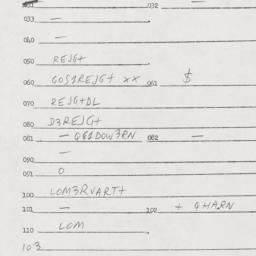 032 —
033 —
040 —
050 REJG+
060 GOS1REJG+ xx 061 $
070 REJG+DL
080 D3REJG+
081 — QG1DOW3RN 082 —
090 —
091 0
100 LOM3RVART+
101 — 102 + QHARN
110 LOM
103